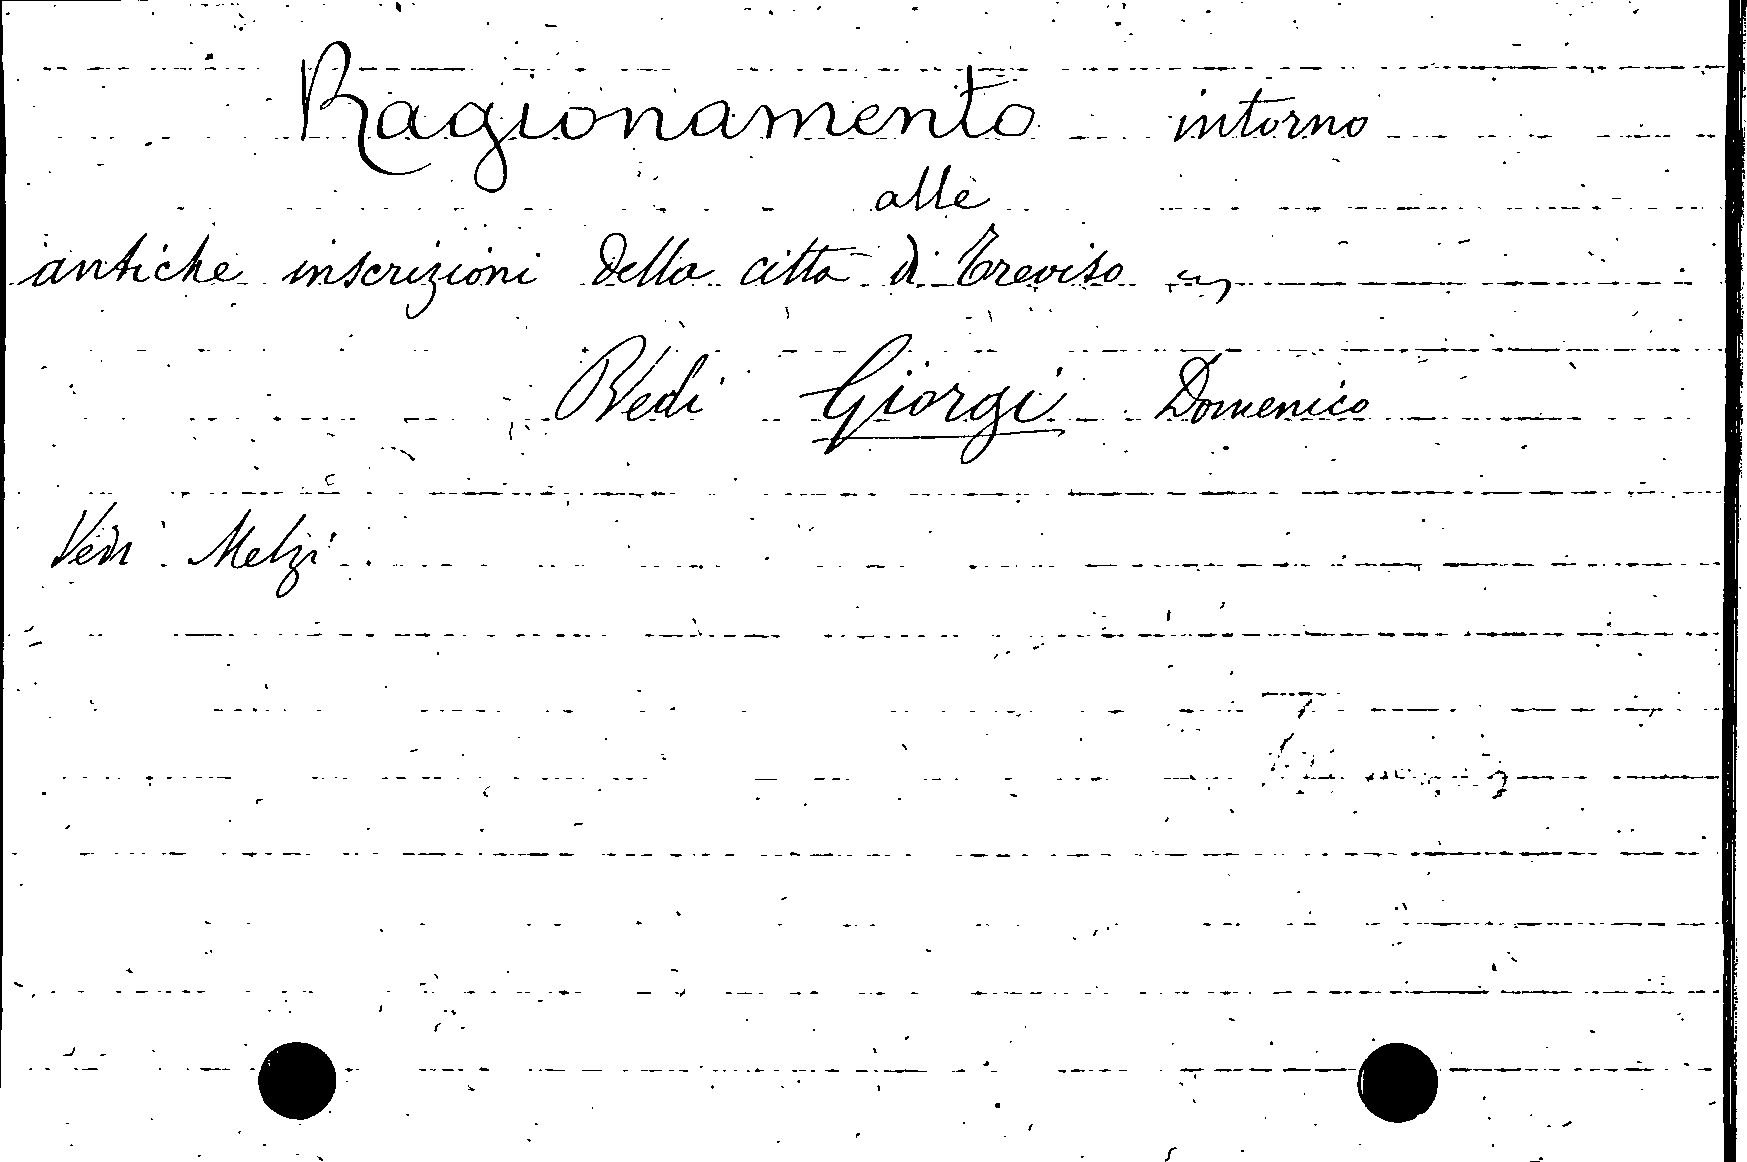 Ragionamento intorno
alle
antiche inscrizioni della città di Treviso
Vedi Giorgi Domenico
Vedi Melzi